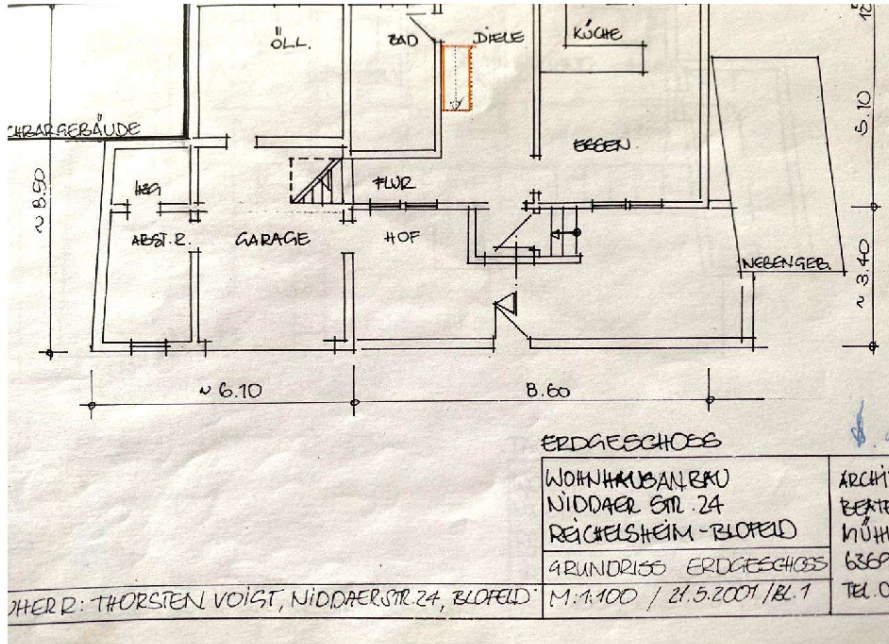 ÖLL.
BAD
DIELE
KÜCHE
12
CHBARGEBÄUDE
ESSEN
5.10
~ 8.50
FLUR
ABST.R.
GARAGE
HOF
NEBENGEB.
~ 3.40
~ 6.10
8.60
ERDGESCHOSS
WOHNHAUSANBAU
NIDDAER STR. 24
REICHELSHEIM-BLOFELD
GRUNDRISS ERDGESCHOSS
M:1:100 / 21.5.2001 / BL.1
ARCHI
BEATE
MÜH
6369
TEL.0
HERR: THORSTEN VOIGT, NIDDAERSTR. 24, BLOFELD